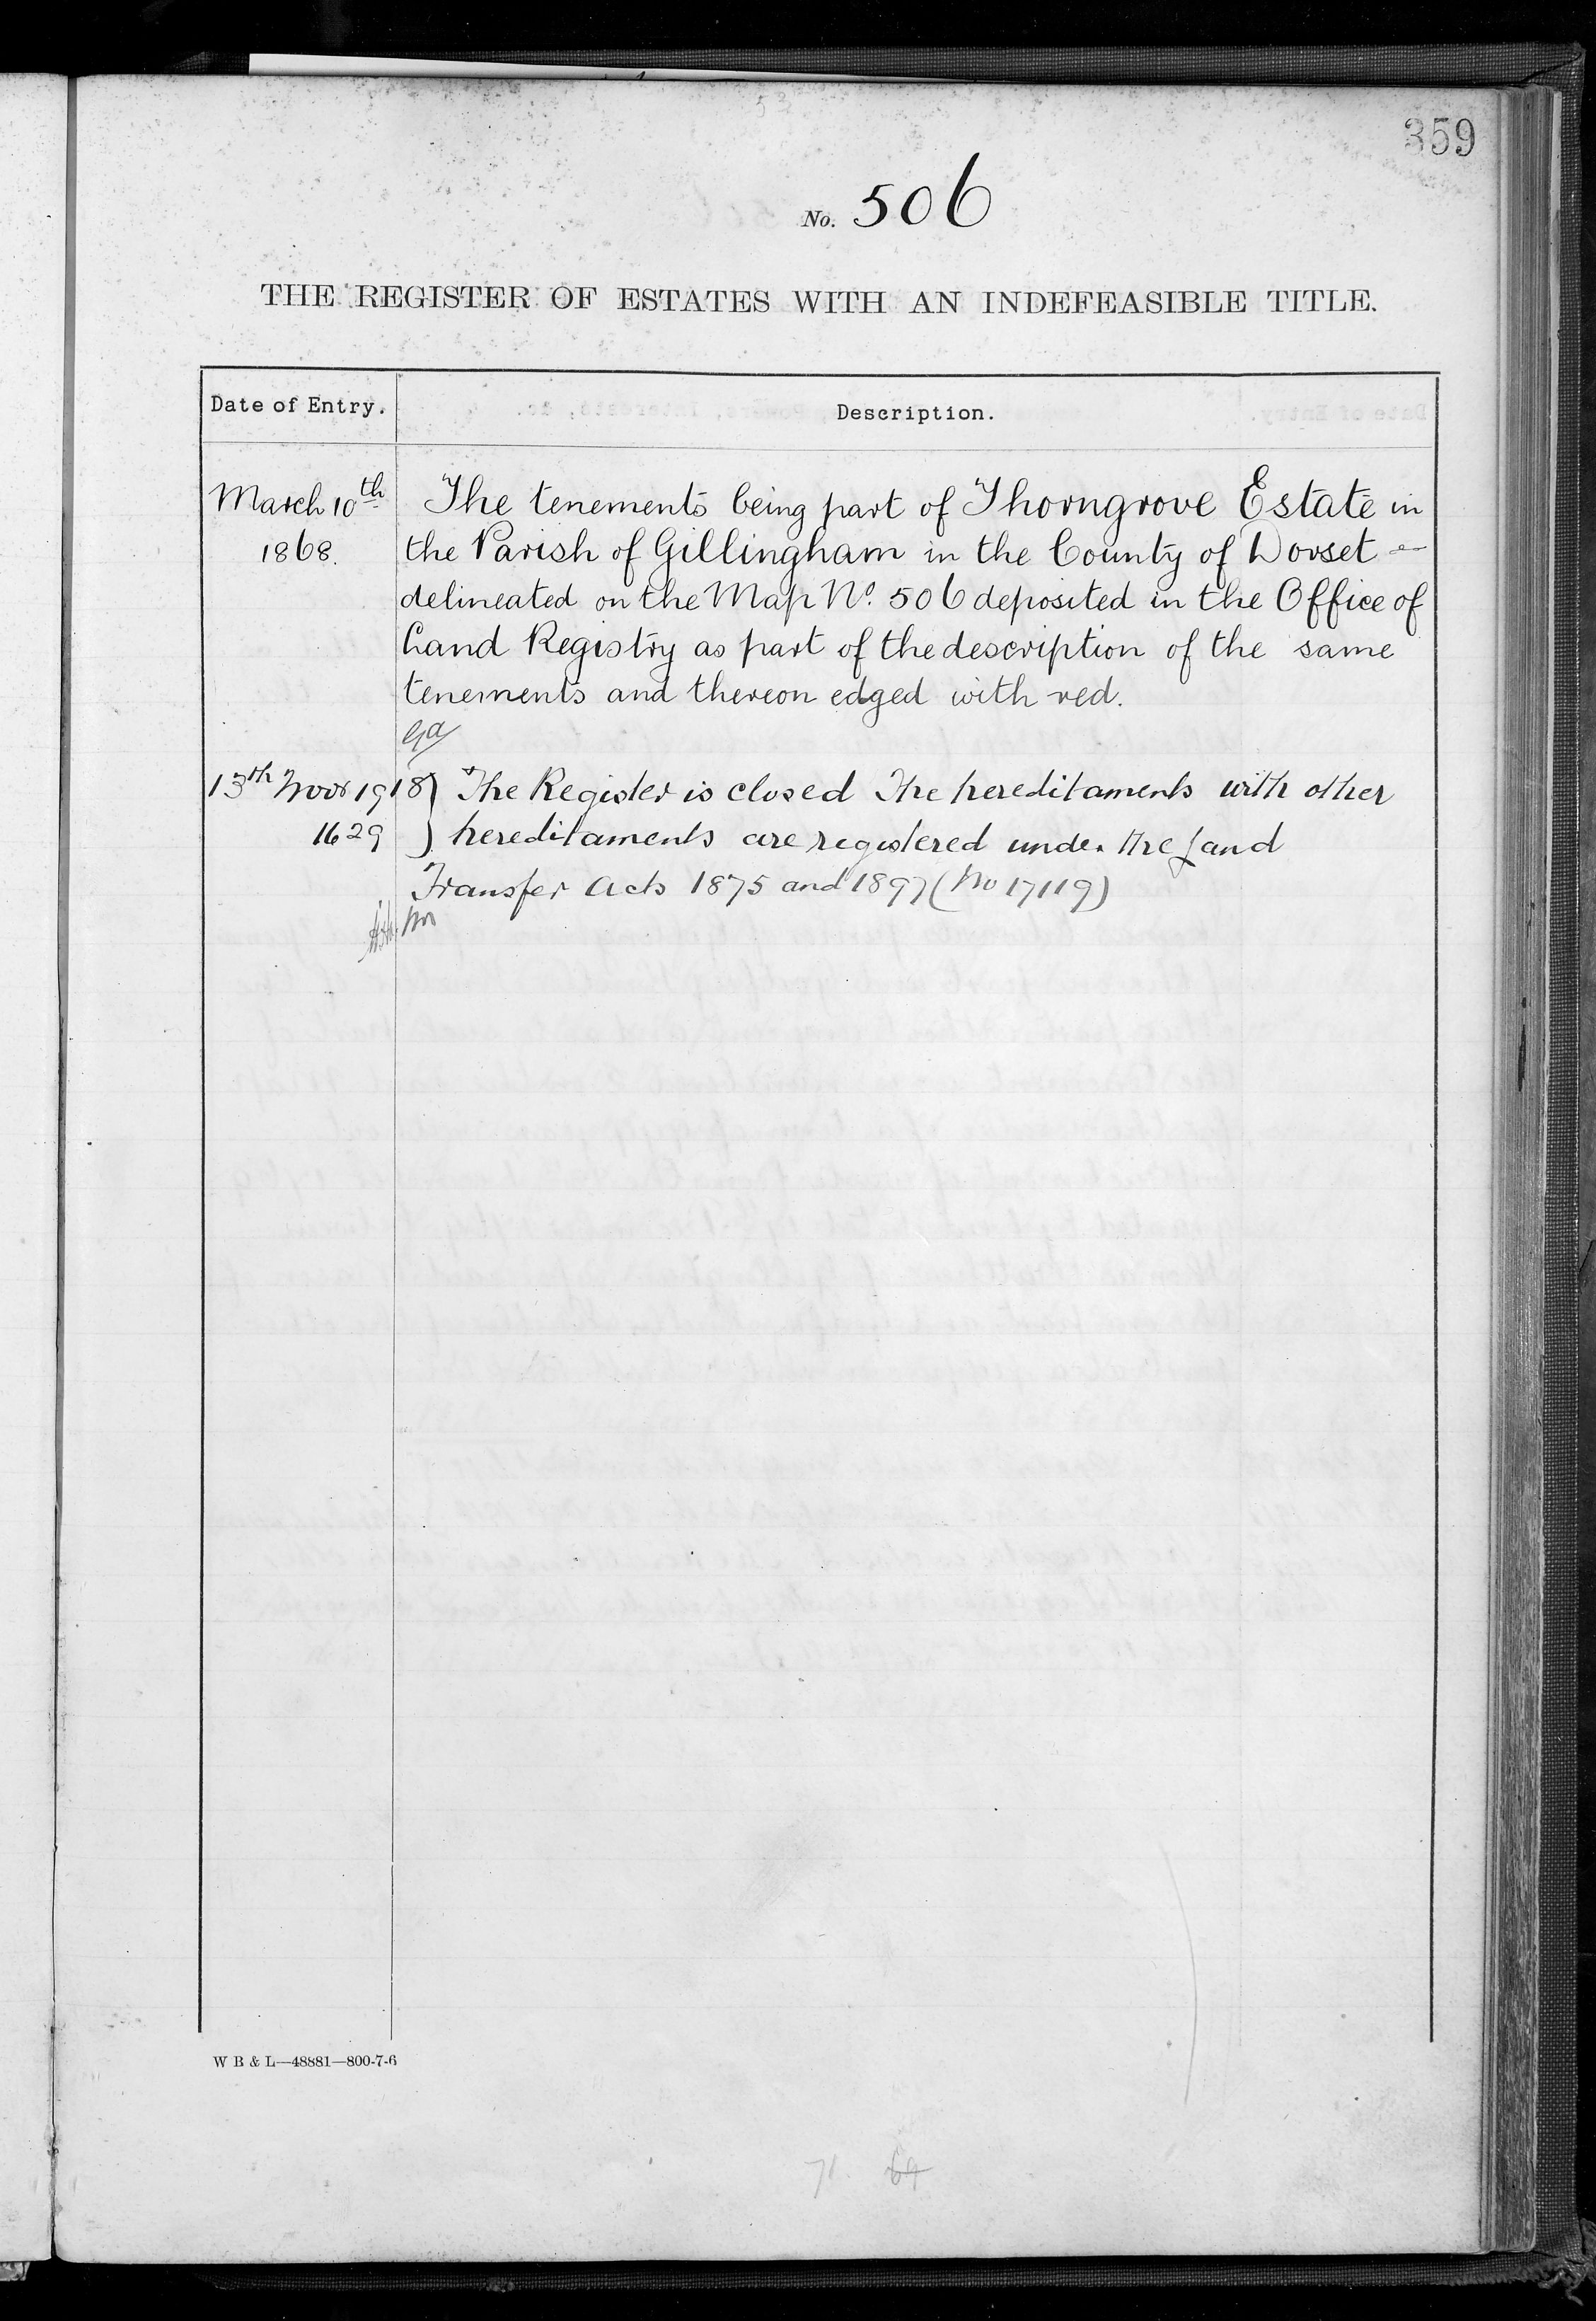 359
No. 506
THE REGISTER OF ESTATES WITH AN INDEFEASIBLE TITLE.
Date of Entry. Description.
March 10th The tenements being part of Thorngrove Estate in
1868. the Parish of Gillingham in the County of Dorset
delineated on the Map No. 506 deposited in the Office of
Land Registry as part of the description of the same
tenements and thereon edged with red.
13th Novr 1918 The Register is closed The hereditaments with other
1629 hereditaments are registered under the Land
Transfer Acts 1875 and 1897 (No 17119)
W B & L—48881—800-7-6
71 69